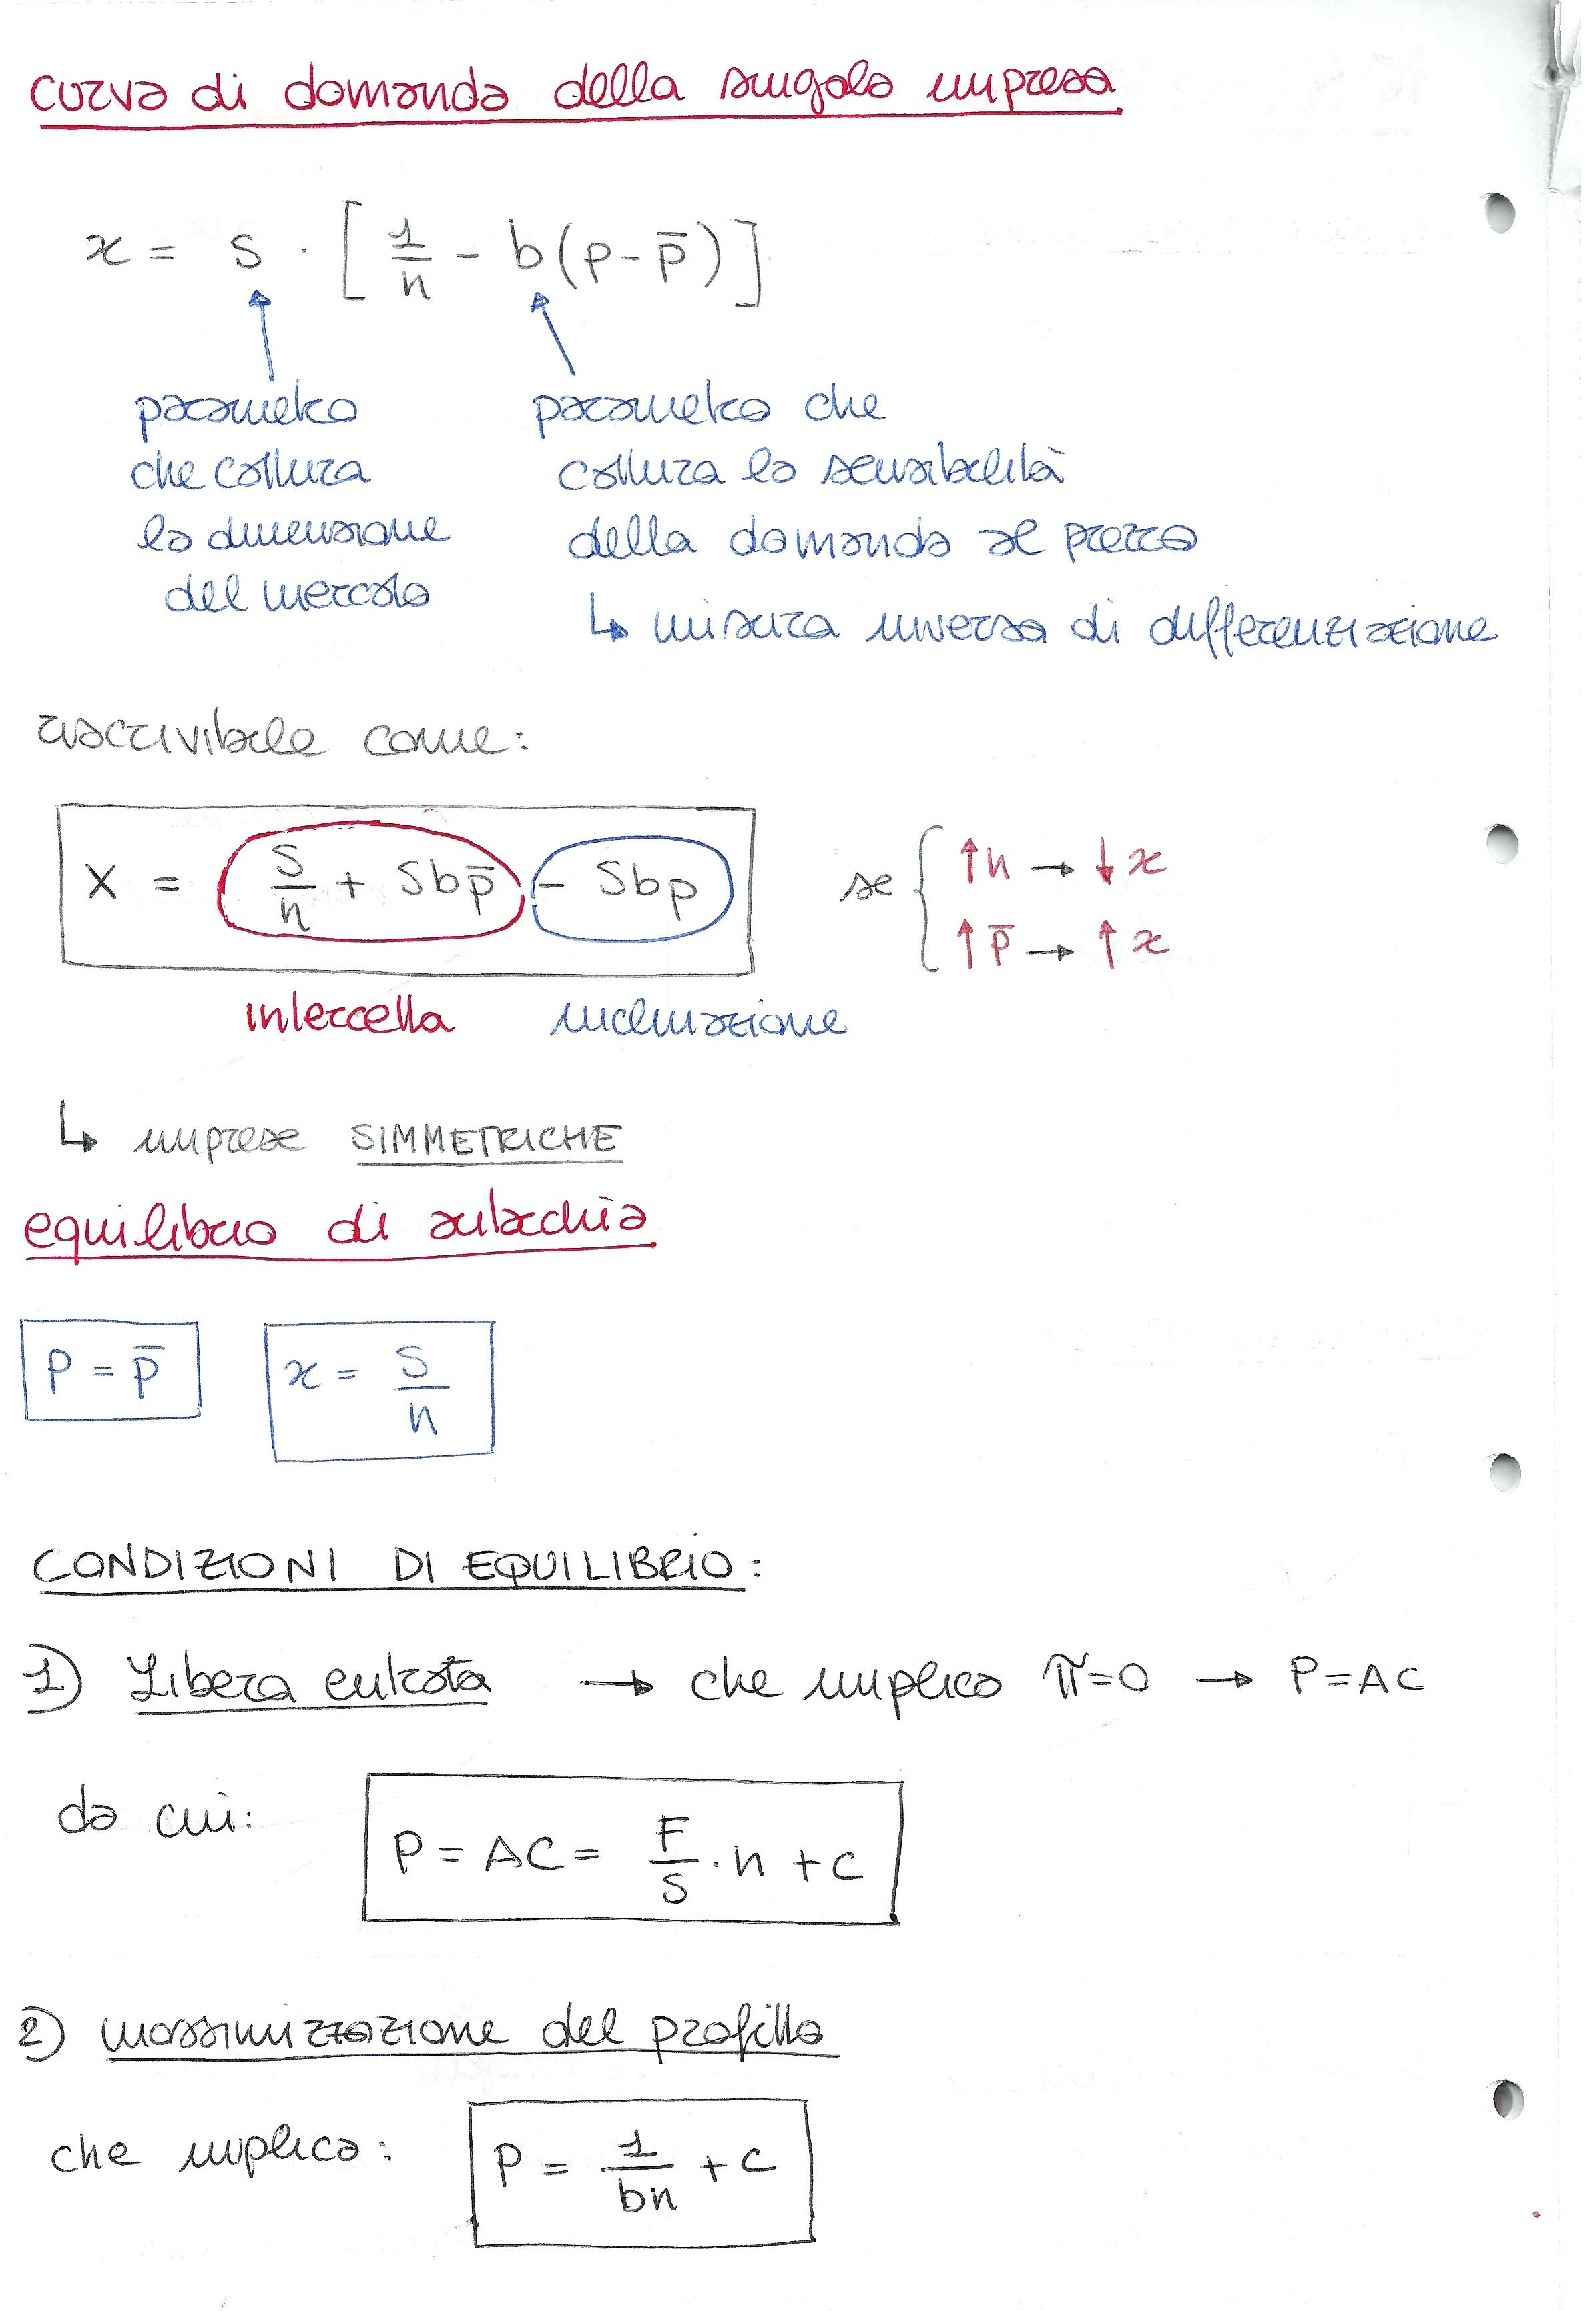 curva di domanda della singola impresa
x = S · [ 1/n - b(p-p̄) ]
parametro che cattura la dimensione del mercato
parametro che cattura la sensibilità della domanda al prezzo
↳ misura inversa di differenziazione
riscrivibile come:
X = S/n + Sbp̄ - Sbp
se { ↑n → ↓x
↑p̄ → ↑x
intercetta inclinazione
↳ imprese SIMMETRICHE
equilibrio di autarchia
P = p̄ x = S/n
CONDIZIONI DI EQUILIBRIO:
1) Libera entrata → che implica π=0 → P=AC
da cui: P = AC = F/S · n + c
2) massimizzazione del profitto
che implica: P = 1/bn + c